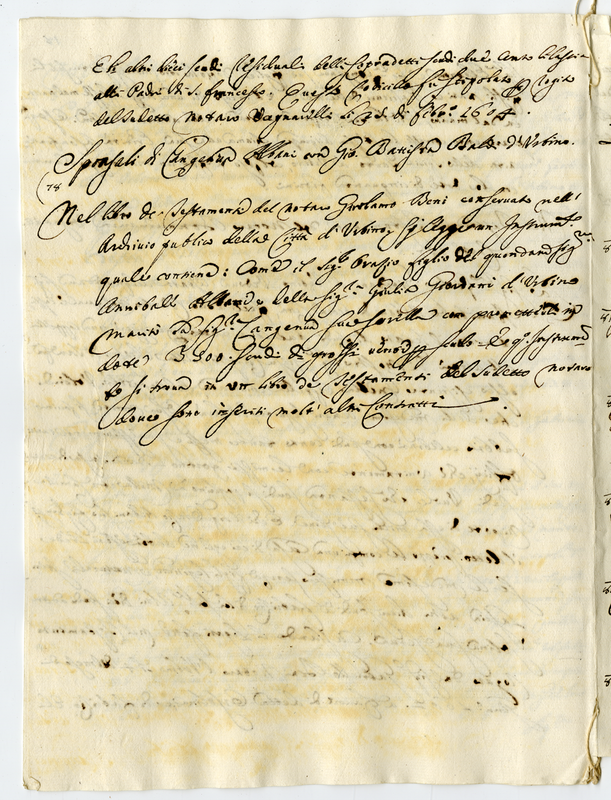 E li altri dieci scudi residuali delli sopradetti scudi due cento li lascia
alli Padri di S. Francesco. Questo Codicillo fù stipolato p rogito
del sudetto notaro Vagnarilli li 28 di febro 1604.
Sponsali di Tangenua Albani con Gio. Battista Baldi d'Urbino.
78
Nel libro de Testamenti del notaro Girolamo Beni conservato nell'
Archivio publico della Città di Urbino, si legge un Instrumto
quale contiene: Come il Sigr Orazio figlio del quondam Sigr
Annibale Albani e della Sigra Giulia Giordani d'Urbino
maritò la Sigra Tangenua sua sorella con in
dote 3500 scudi di grossi venti p scudo. E qo Instrumto
si trova in un libro de Testamenti del sudetto notaro
dove sono inseriti molti altri Contratti